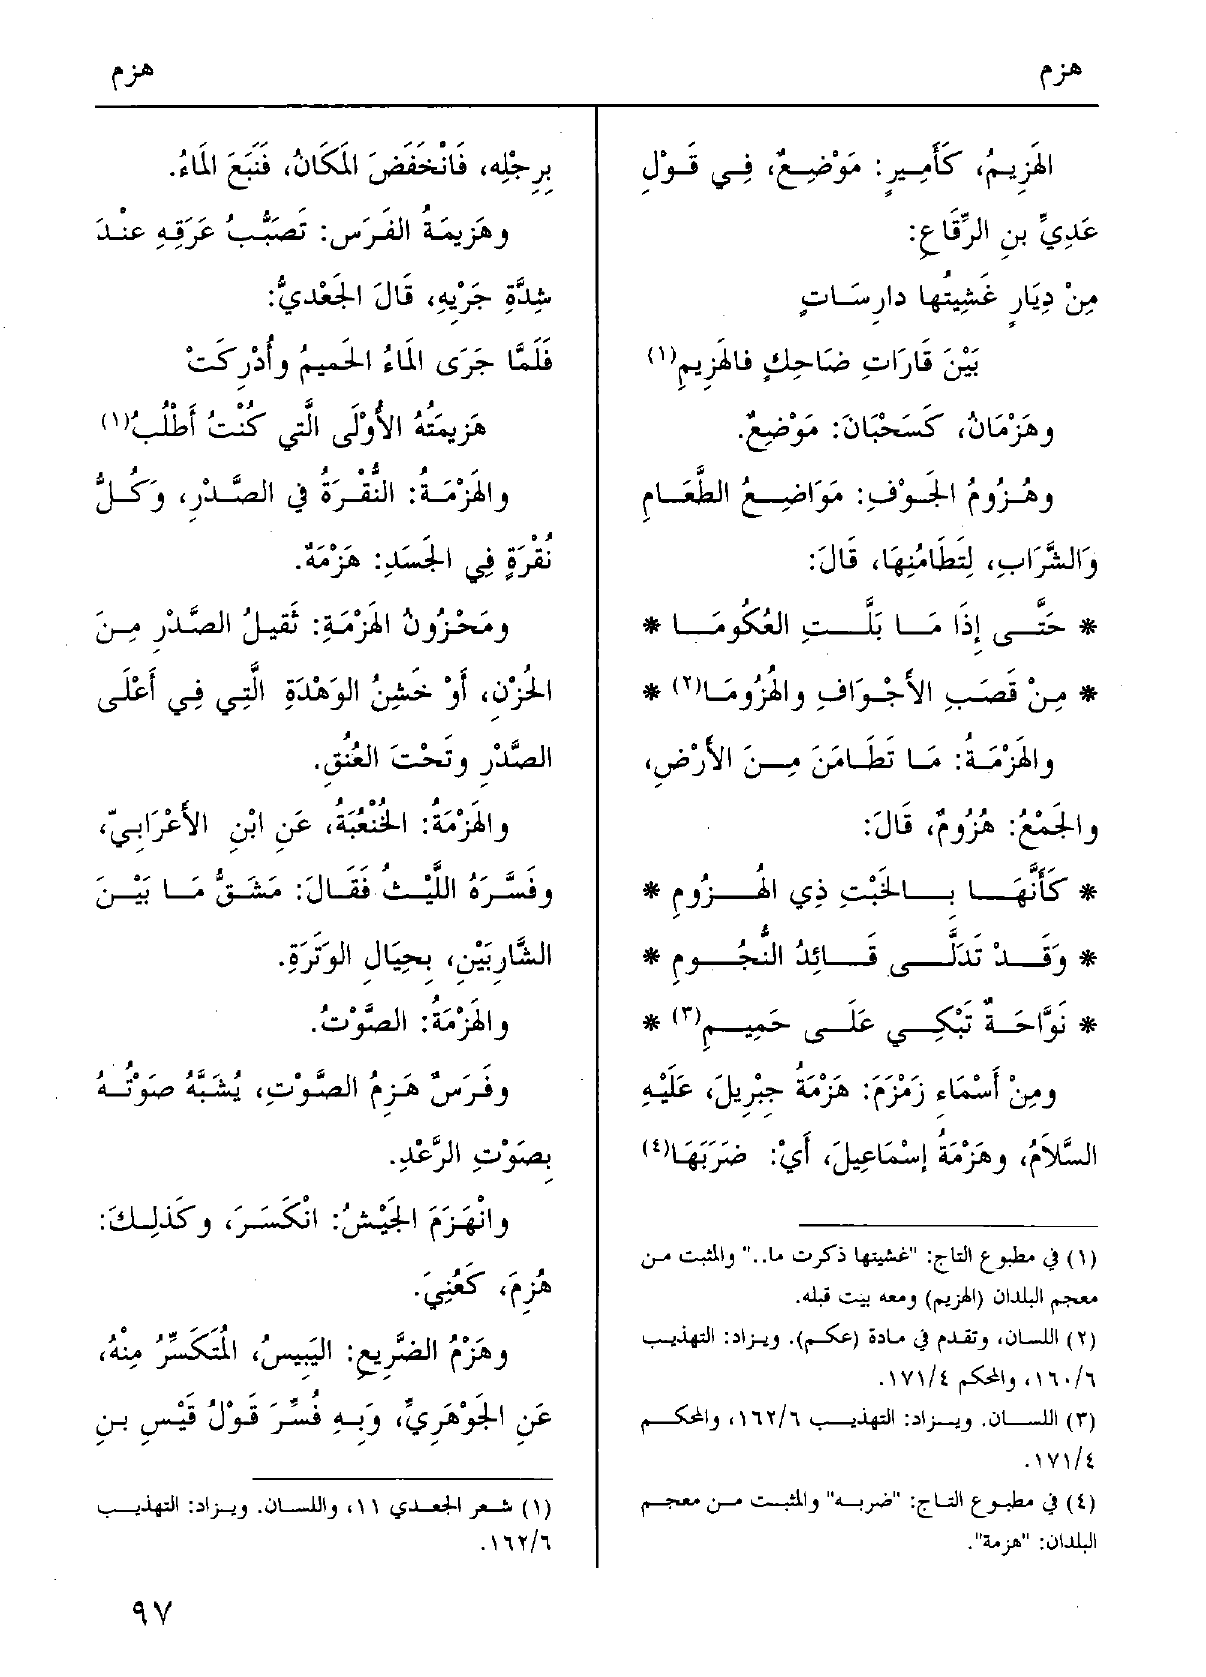 هزم
هزم
الهَزِيمُ، كَأَمِيرٍ: مَوْضِعٌ، فِي قَوْلِ
عَدِيِّ بنِ الرِّقَاعِ:
مِنْ دِيَارٍ غَشِيتُها دارِسَاتٍ
بَيْنَ قَارَاتِ ضَاحِكٍ فالهَزِيمِ(١)
وهَزْمَانُ، كَسَحْبَانَ: مَوْضِعٌ.
وهُزُومُ الجَوْفِ: مَوَاضِعُ الطَّعَامِ
وَالشَّرَابِ، لِتَطَامُنِهَا، قَالَ:
* حَتَّى إِذَا مَا بَلَّتِ العُكُومَا *
* مِنْ قَصَبِ الأَجْوَافِ والهُزُومَا(٢) *
والهَزْمَةُ: مَا تَطَامَنَ مِنَ الأَرْضِ،
والجَمْعُ: هُزُومٌ، قَالَ:
* كَأَنَّهَا بِالخَبْتِ ذِي الهُزُومِ *
* وَقَدْ تَدَلَّى قَائِدُ النُّجُومِ *
* نَوَّاحَةٌ تَبْكِي عَلَى حَمِيمِ(٣) *
ومِنْ أَسْمَاءِ زَمْزَمَ: هَزْمَةُ جِبْرِيلَ، عَلَيْهِ
السَّلاَمُ، وهَزْمَةُ إِسْمَاعِيلَ، أَيْ: ضَرَبَهَا(٤)
(١) في مطبوع التاج: "غشيتها ذكرت ما.." والمثبت من
معجم البلدان (الهزيم) ومعه بيت قبله.
(٢) اللسان، وتقدم في مادة (عكم). ويزاد: التهذيب
٦/١٦٠، والمحكم ٤/١٧١.
(٣) اللسان. ويزاد: التهذيب ٦/١٦٢، والمحكم
٤/١٧١.
(٤) في مطبوع التاج: "ضربه" والمثبت من معجم
البلدان: "هزمة".
بِرِجْلِه، فَانْخَفَضَ المَكَانُ، فَنَبَعَ المَاءُ.
وهَزِيمَةُ الفَرَسِ: تَصَبُّبُ عَرَقِهِ عِنْدَ
شِدَّةِ جَرْيِهِ، قَالَ الجَعْدِيُّ:
فَلَمَّا جَرَى المَاءُ الحَمِيمُ وأُدْرِكَتْ
هَزِيمَتُهُ الأُوْلَى الَّتِي كُنْتُ أَطْلُبُ(١)
والهَزْمَةُ: النُّقْرَةُ في الصَّدْرِ، وَكُلُّ
نُقْرَةٍ فِي الجَسَدِ: هَزْمَةٌ.
ومَحْزُونُ الهَزْمَةِ: ثَقِيلُ الصَّدْرِ مِنَ
الحُزْنِ، أَوْ خَشِنُ الوَهْدَةِ الَّتِي فِي أَعْلَى
الصَّدْرِ وتَحْتَ العُنُقِ.
والهَزْمَةُ: الخُنْعُبَةُ، عَنِ ابْنِ الأَعْرَابِيّ،
وفَسَّرَهُ اللَّيْثُ فَقَالَ: مَشَقُّ مَا بَيْنَ
الشَّارِبَيْنِ، بِحِيَالِ الوَتَرَةِ.
والهَزْمَةُ: الصَّوْتُ.
وفَرَسٌ هَزِمُ الصَّوْتِ، يُشَبَّهُ صَوْتُهُ
بِصَوْتِ الرَّعْدِ.
وانْهَزَمَ الجَيْشُ: انْكَسَرَ، وكَذلِكَ:
هُزِمَ، كَعُنِيَ.
وهَزْمُ الضَّرِيعِ: اليَبِيسُ، المُتَكَسِّرُ مِنْهُ،
عَنِ الجَوْهَرِيِّ، وَبِهِ فُسِّرَ قَوْلُ قَيْسِ بنِ
(١) شعر الجعدي ١١، واللسان. ويزاد: التهذيب
٦/١٦٢.
٩٧